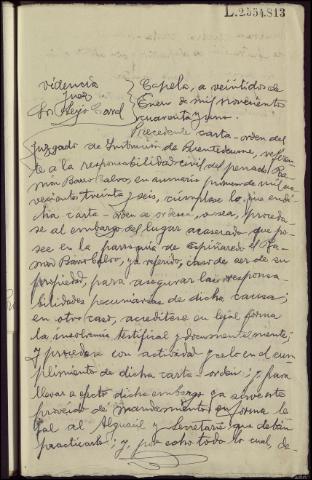 L.2554.813
Providencia
Juez
Sr. Alejo Corral
Capela, a veintidos de
Enero de mil novecientos
cuarenta y uno.
Precedente carta-orden del
Juzgado de Instrucción de Puentedeume, referen
te a la responsabilidad civil del penado Ra
món Barro Calvo, en sumario primero de mil no
vecientos treinta y seis, cúmplase lo que en di
cha carta-orden se ordena, o sea, proceda
se al embargo del lugar acasarado que po
see en la parroquia de Espiñaredo el Ra
món Barro Calvo, ya referido, caso de ser de su
propiedad, para asegurar las responsa
bilidades pecuniarias de dicha causa;
en otro caso, acreditese en legal forma
la insolvencia testifical y documentalmente;
y procédase con actividad y celo en el cum
plimiento de dicha carta-orden; y para
llevar a efecto dicho embargo
de mandamiento en forma le
gal al Alguacil y Secretario que deban
practicarlo; y, por echo todo lo cual, de-